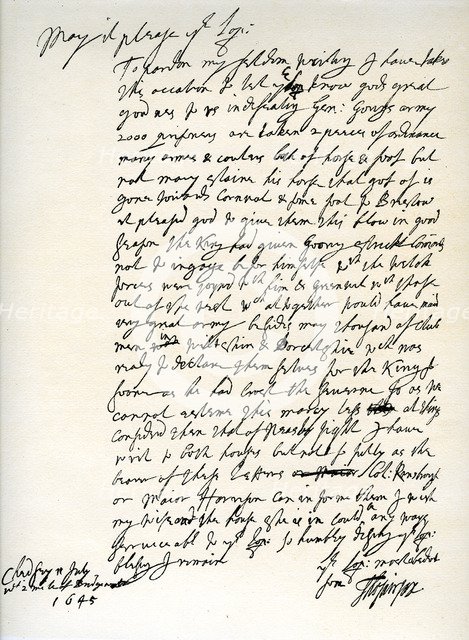 May it please yr Lop:
To pardon my seldom writing I have taken
this occation to let yr Lop know gods great
goodnes to us in defeating Gen: Gorings army
2000 prisoners are taken 2 peeces of ordinance
many armes & coulers both of horse & foot but
not many slaine his horse that got of is
gone towards Cornwal & some foot to Bristow
it pleased god to give them this blow in good
season the King had given Goring strickt Comands
not to ingage before himselfe wth the Welch
forces were joyned wth him & Greenvil wth those
out of the west wch altogether would have mad
very great army besides many thousand of Club
men in Wiltshire & Dorcetshire wch was
ready to declare themselves for the King so
soone as he had the so as we
cannot esteeme this mercy less all things
considred then that of Naseby fight I have
writ to both houses but not so fully as the
bearer of these Letters Col: Rensbrough
or Maior Harrison can informe them I wish
my wife and the house she is in could be any ways
serviceable to yr Lop: so humbly desiring yr Lop:
blessing I remain
yr Lop: most obedient
son
T Fairfax
Chedsey 11 July
wst 2 mile of Bridgwater
1645